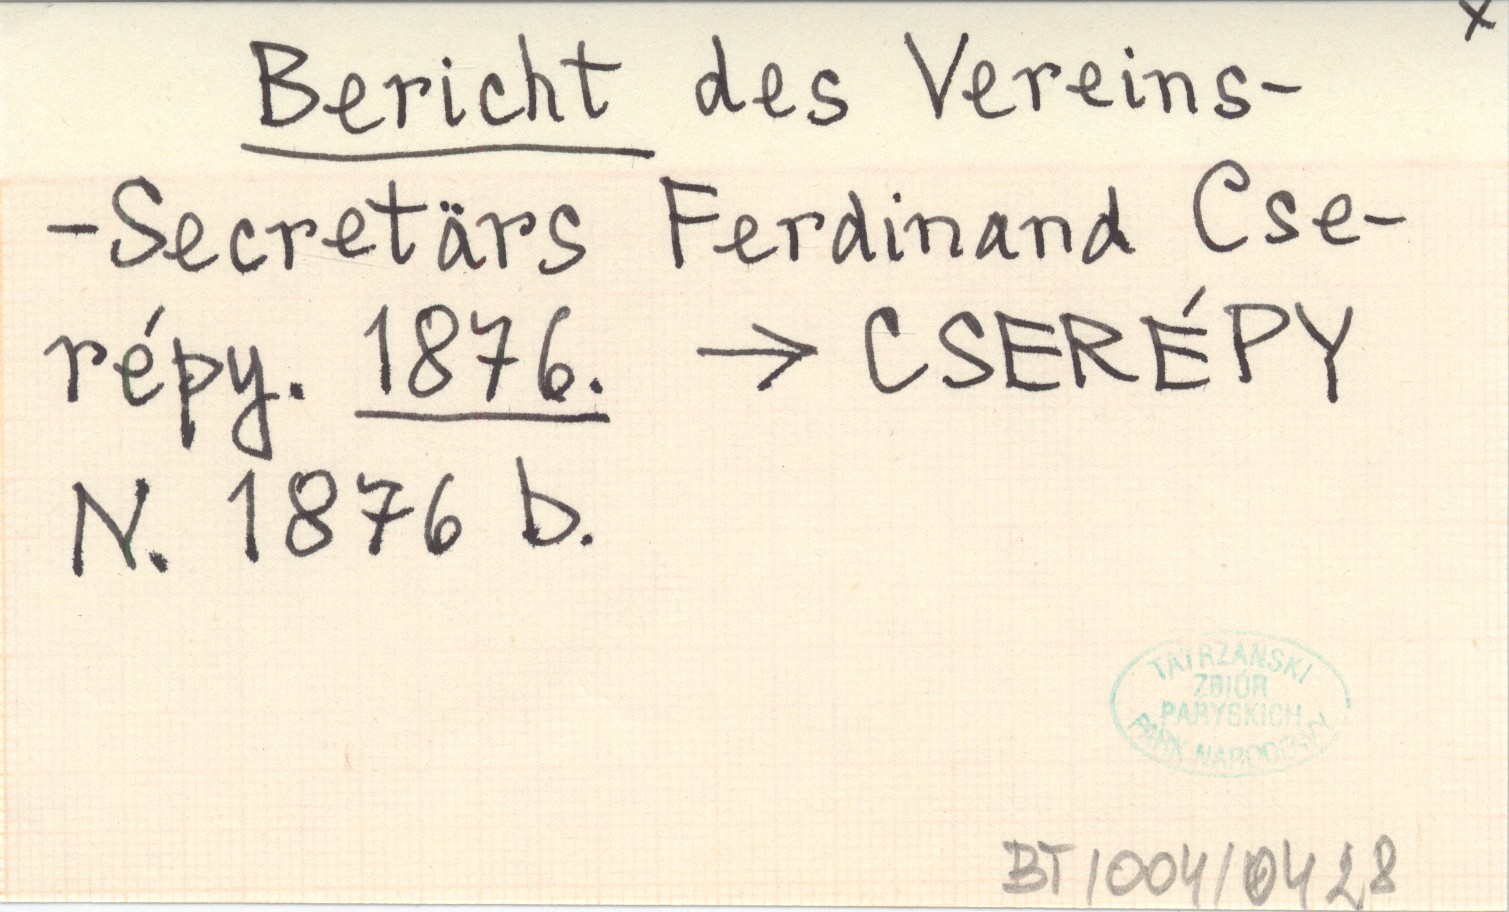 x
Bericht des Vereins-
-Secretärs Ferdinand Cse-
répy. 1876. → CSERÉPY
N. 1876 b.
TATRZAŃSKI
ZBIÓR
PARYSKICH
PARK NARODOWY
BT/1004/0428